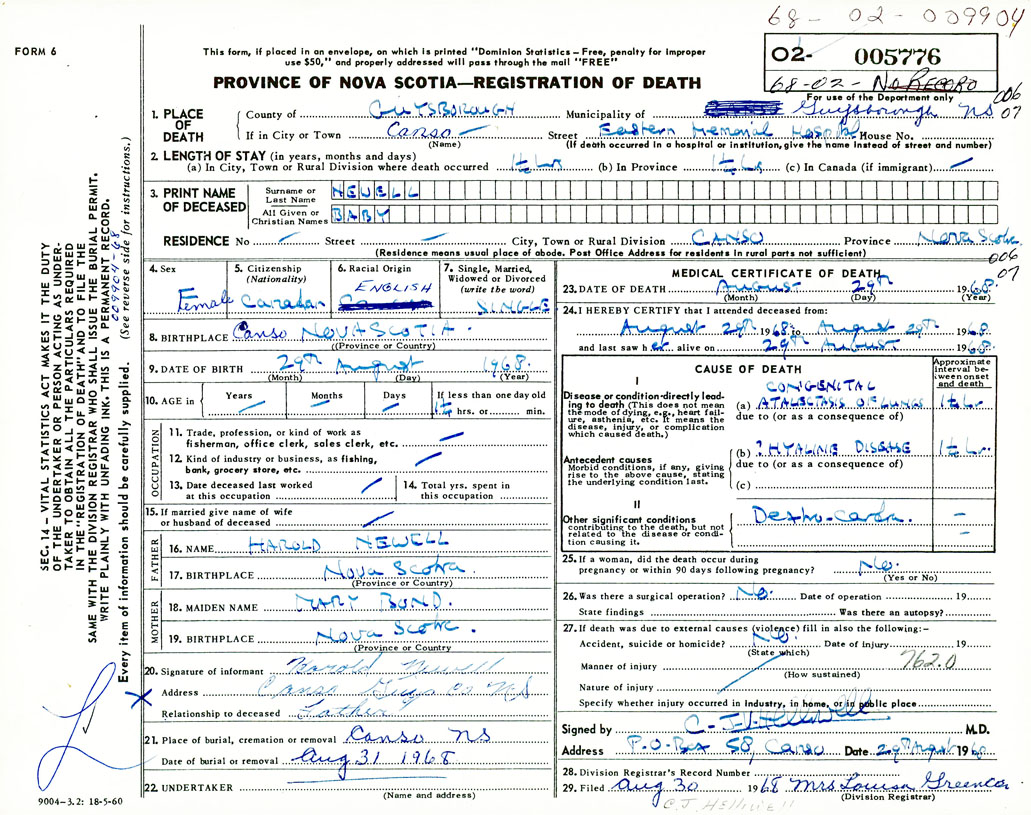 68- 02- 009904
FORM 6
This form, if placed in an envelope, on which is printed "Dominion Statistics – Free, penalty for improper
use $50," and properly addressed will pass through the mail "FREE"
02- 005776
PROVINCE OF NOVA SCOTIA—REGISTRATION OF DEATH
68-02- No RECORD
For use of the Department only
006
07
1. PLACE OF DEATH
County of GUYSBOROUGH Municipality of Guysborough NS
If in City or Town Canso Street Eastern Memorial Hospital House No.
(Name) (If death occurred in a hospital or institution, give the name instead of street and number)
2. LENGTH OF STAY (in years, months and days)
(a) In City, Town or Rural Division where death occurred (b) In Province (c) In Canada (if immigrant)
3. PRINT NAME OF DECEASED
Surname or Last Name NEWELL
All Given or Christian Names BABY
RESIDENCE No Street City, Town or Rural Division CANSO Province Nova Scotia
(Residence means usual place of abode. Post Office Address for residents in rural parts not sufficient)
006
07
4. Sex Female
5. Citizenship (Nationality) Canadian
6. Racial Origin ENGLISH
7. Single, Married, Widowed or Divorced (write the word) SINGLE
8. BIRTHPLACE Canso NOVA SCOTIA.
(Province or Country)
9. DATE OF BIRTH 29th August 1968.
(Month) (Day) (Year)
10. AGE in Years Months Days If less than one day old
hrs. or min.
OCCUPATION
11. Trade, profession, or kind of work as
fisherman, office clerk, sales clerk, etc.
12. Kind of industry or business, as fishing,
bank, grocery store, etc.
13. Date deceased last worked
at this occupation
14. Total yrs. spent in
this occupation
15. If married give name of wife
or husband of deceased
FATHER
16. NAME HAROLD NEWELL
17. BIRTHPLACE Nova Scotia
(Province or Country)
MOTHER
18. MAIDEN NAME MARY BOND.
19. BIRTHPLACE Nova Scotia.
(Province or Country
20. Signature of informant Harold Newell
Address Canso Guys Co NS
Relationship to deceased Father
21. Place of burial, cremation or removal Canso NS
Date of burial or removal Aug 31 1968
22. UNDERTAKER
(Name and address)
MEDICAL CERTIFICATE OF DEATH
23. DATE OF DEATH August 29th 1968.
(Month) (Day) (Year)
24. I HEREBY CERTIFY that I attended deceased from:
August 29th 1968 to August 29th 1968.
and last saw her alive on 29th August 1968.
CAUSE OF DEATH
Approximate interval between onset and death
I
Disease or condition directly leading to death (This does not mean the mode of dying, e.g., heart failure, asthenia, etc. It means the disease, injury, or complication which caused death.)
CONGENITAL
(a) ATALECTASIS OF LUNGS
due to (or as a consequence of)
Antecedent causes
Morbid conditions, if any, giving rise to the above cause, stating the underlying condition last.
(b) ? HYALINE DISEASE
due to (or as a consequence of)
(c)
II
Other significant conditions
contributing to the death, but not related to the disease or condition causing it.
25. If a woman, did the death occur during
pregnancy or within 90 days following pregnancy? No.
(Yes or No)
26. Was there a surgical operation? No. Date of operation 19
State findings Was there an autopsy?
27. If death was due to external causes (violence) fill in also the following:–
Accident, suicide or homicide? No. Date of injury 19
(State which)
Manner of injury 762.0
(How sustained)
Nature of injury
Specify whether injury occurred in industry, in home, or in public place
Signed by M.D.
Address P.O. Box 58, Canso Date 29th August 1968
28. Division Registrar's Record Number
29. Filed Aug 30 1968 Mrs Louisa
(Division Registrar)
SEC. 14 – VITAL STATISTICS ACT MAKES IT THE DUTY
OF THE UNDERTAKER OR PERSON ACTING AS UNDER-
TAKER TO OBTAIN ALL THE PARTICULARS REQUIRED
IN THE "REGISTRATION OF DEATH" AND TO FILE THE
SAME WITH THE DIVISION REGISTRAR WHO SHALL ISSUE THE BURIAL PERMIT.
WRITE PLAINLY WITH UNFADING INK. THIS IS A PERMANENT RECORD.
009904-68
Every item of information should be carefully supplied. (See reverse side for instructions.)
9004–3.2: 18-5-60